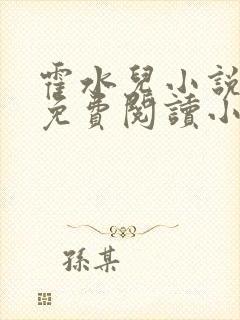 霍水兒小說
免費閱讀小
孫某